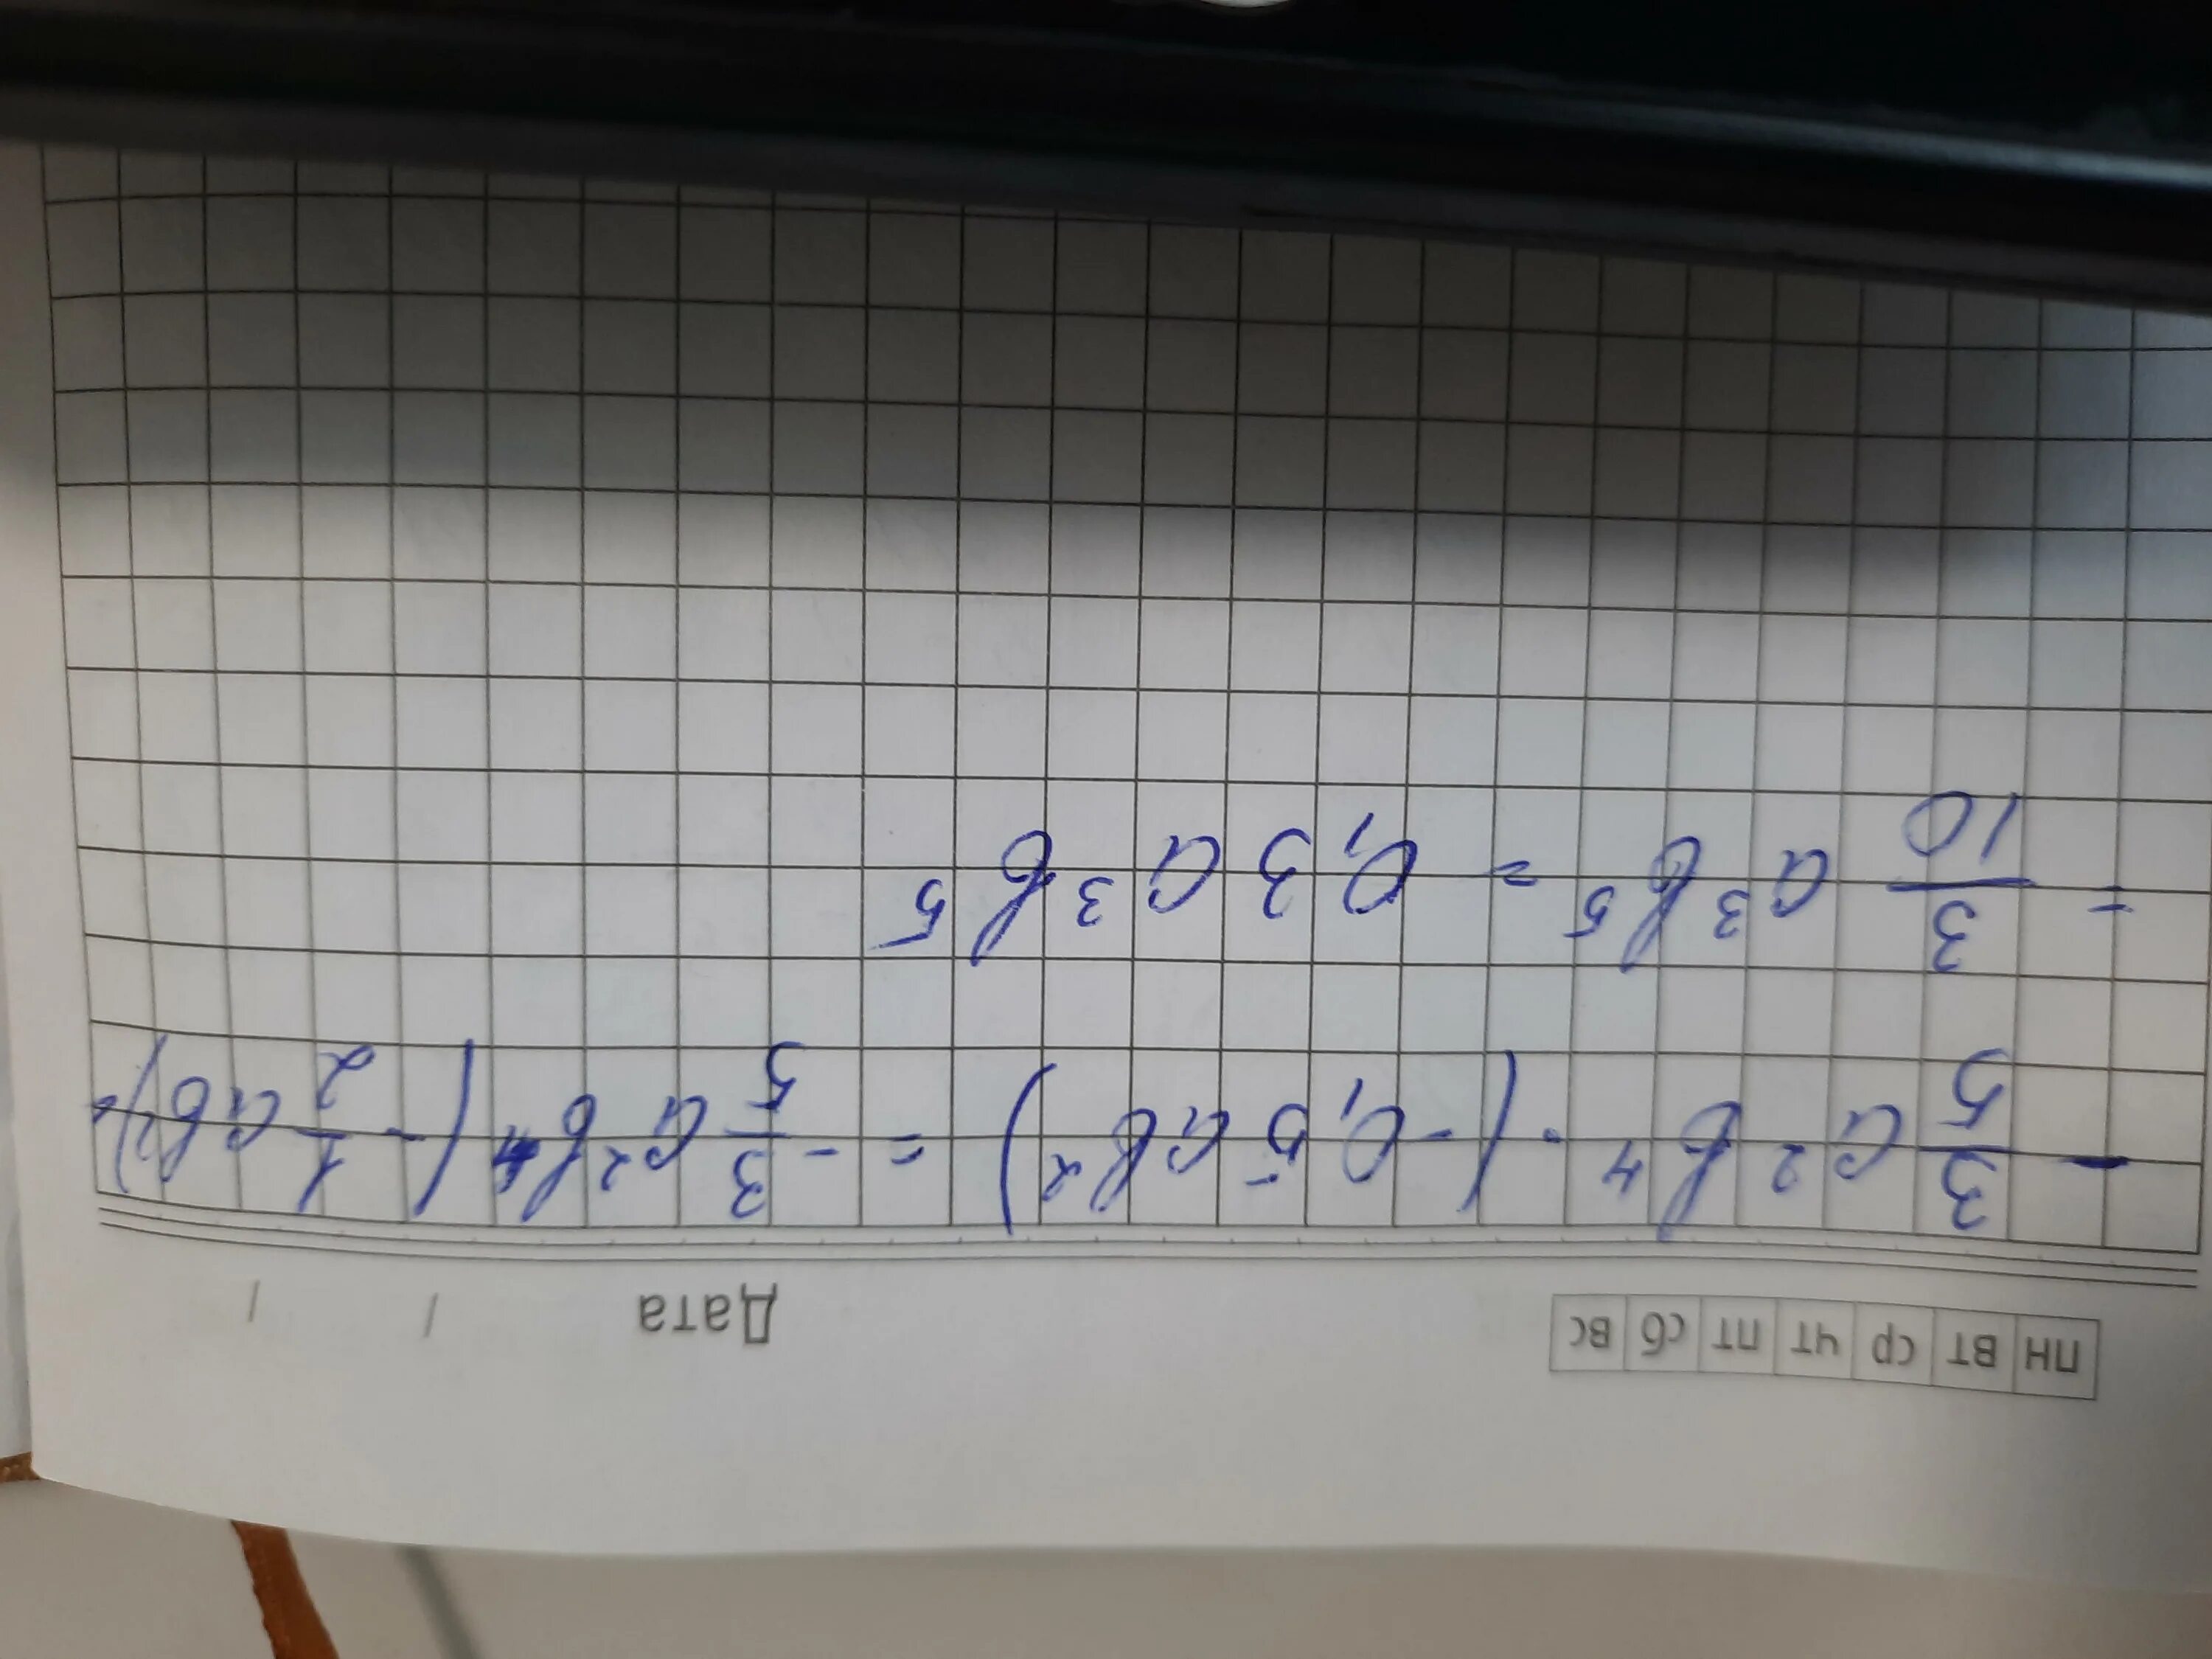 пн вт ср чт пт сб вс Дата / /
- 3/5 a² b⁴ · (-0,5 ab²) = - 3/5 a² b⁴ (- 1/2 ab²)=
= 3/10 a³ b⁵ = 0,3 a³ b⁵